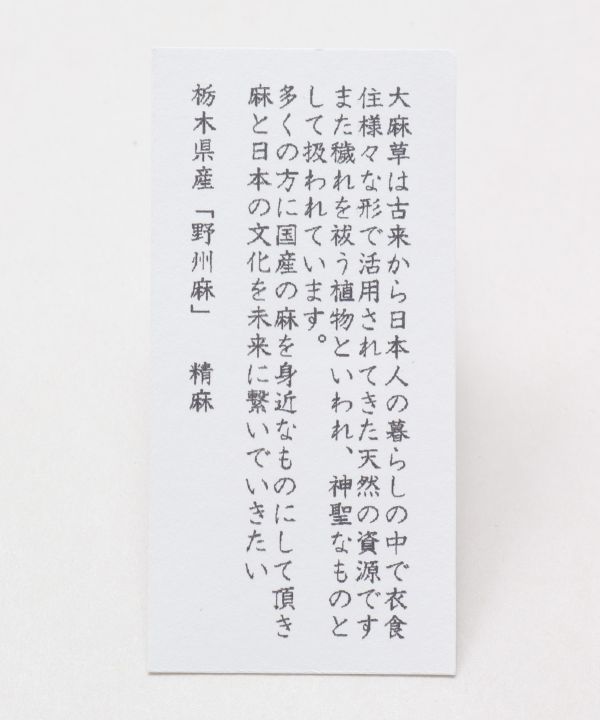 大麻草は古来から日本人の暮らしの中で衣食
住様々な形で活用されてきた天然の資源です
また穢れを祓う植物といわれ、神聖なものと
して扱われています。
多くの方に国産の麻を身近なものにして頂き
麻と日本の文化を未来に繋いでいきたい
栃木県産「野州麻」　精麻